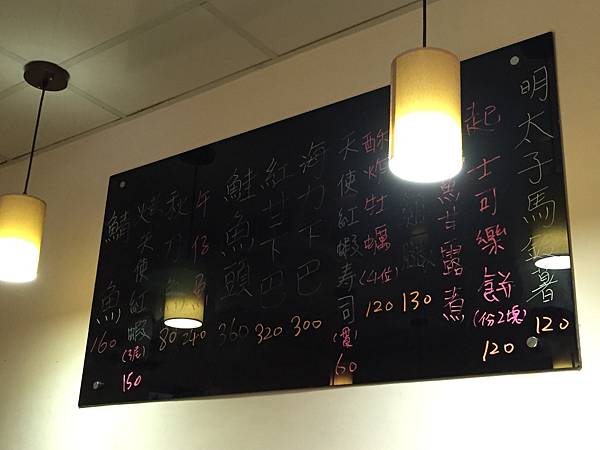 明太子馬鈴薯 120
起士可樂餅(份2塊) 120
甘露煮
130
酥炸牡蠣(4位) 120
天使紅蝦寿司(貫) 60
海力下巴 300
紅甘下巴 320
鮭魚頭 360
午仔魚 240
秋刀魚 80
天使紅蝦(3尾) 150
鯖魚 160